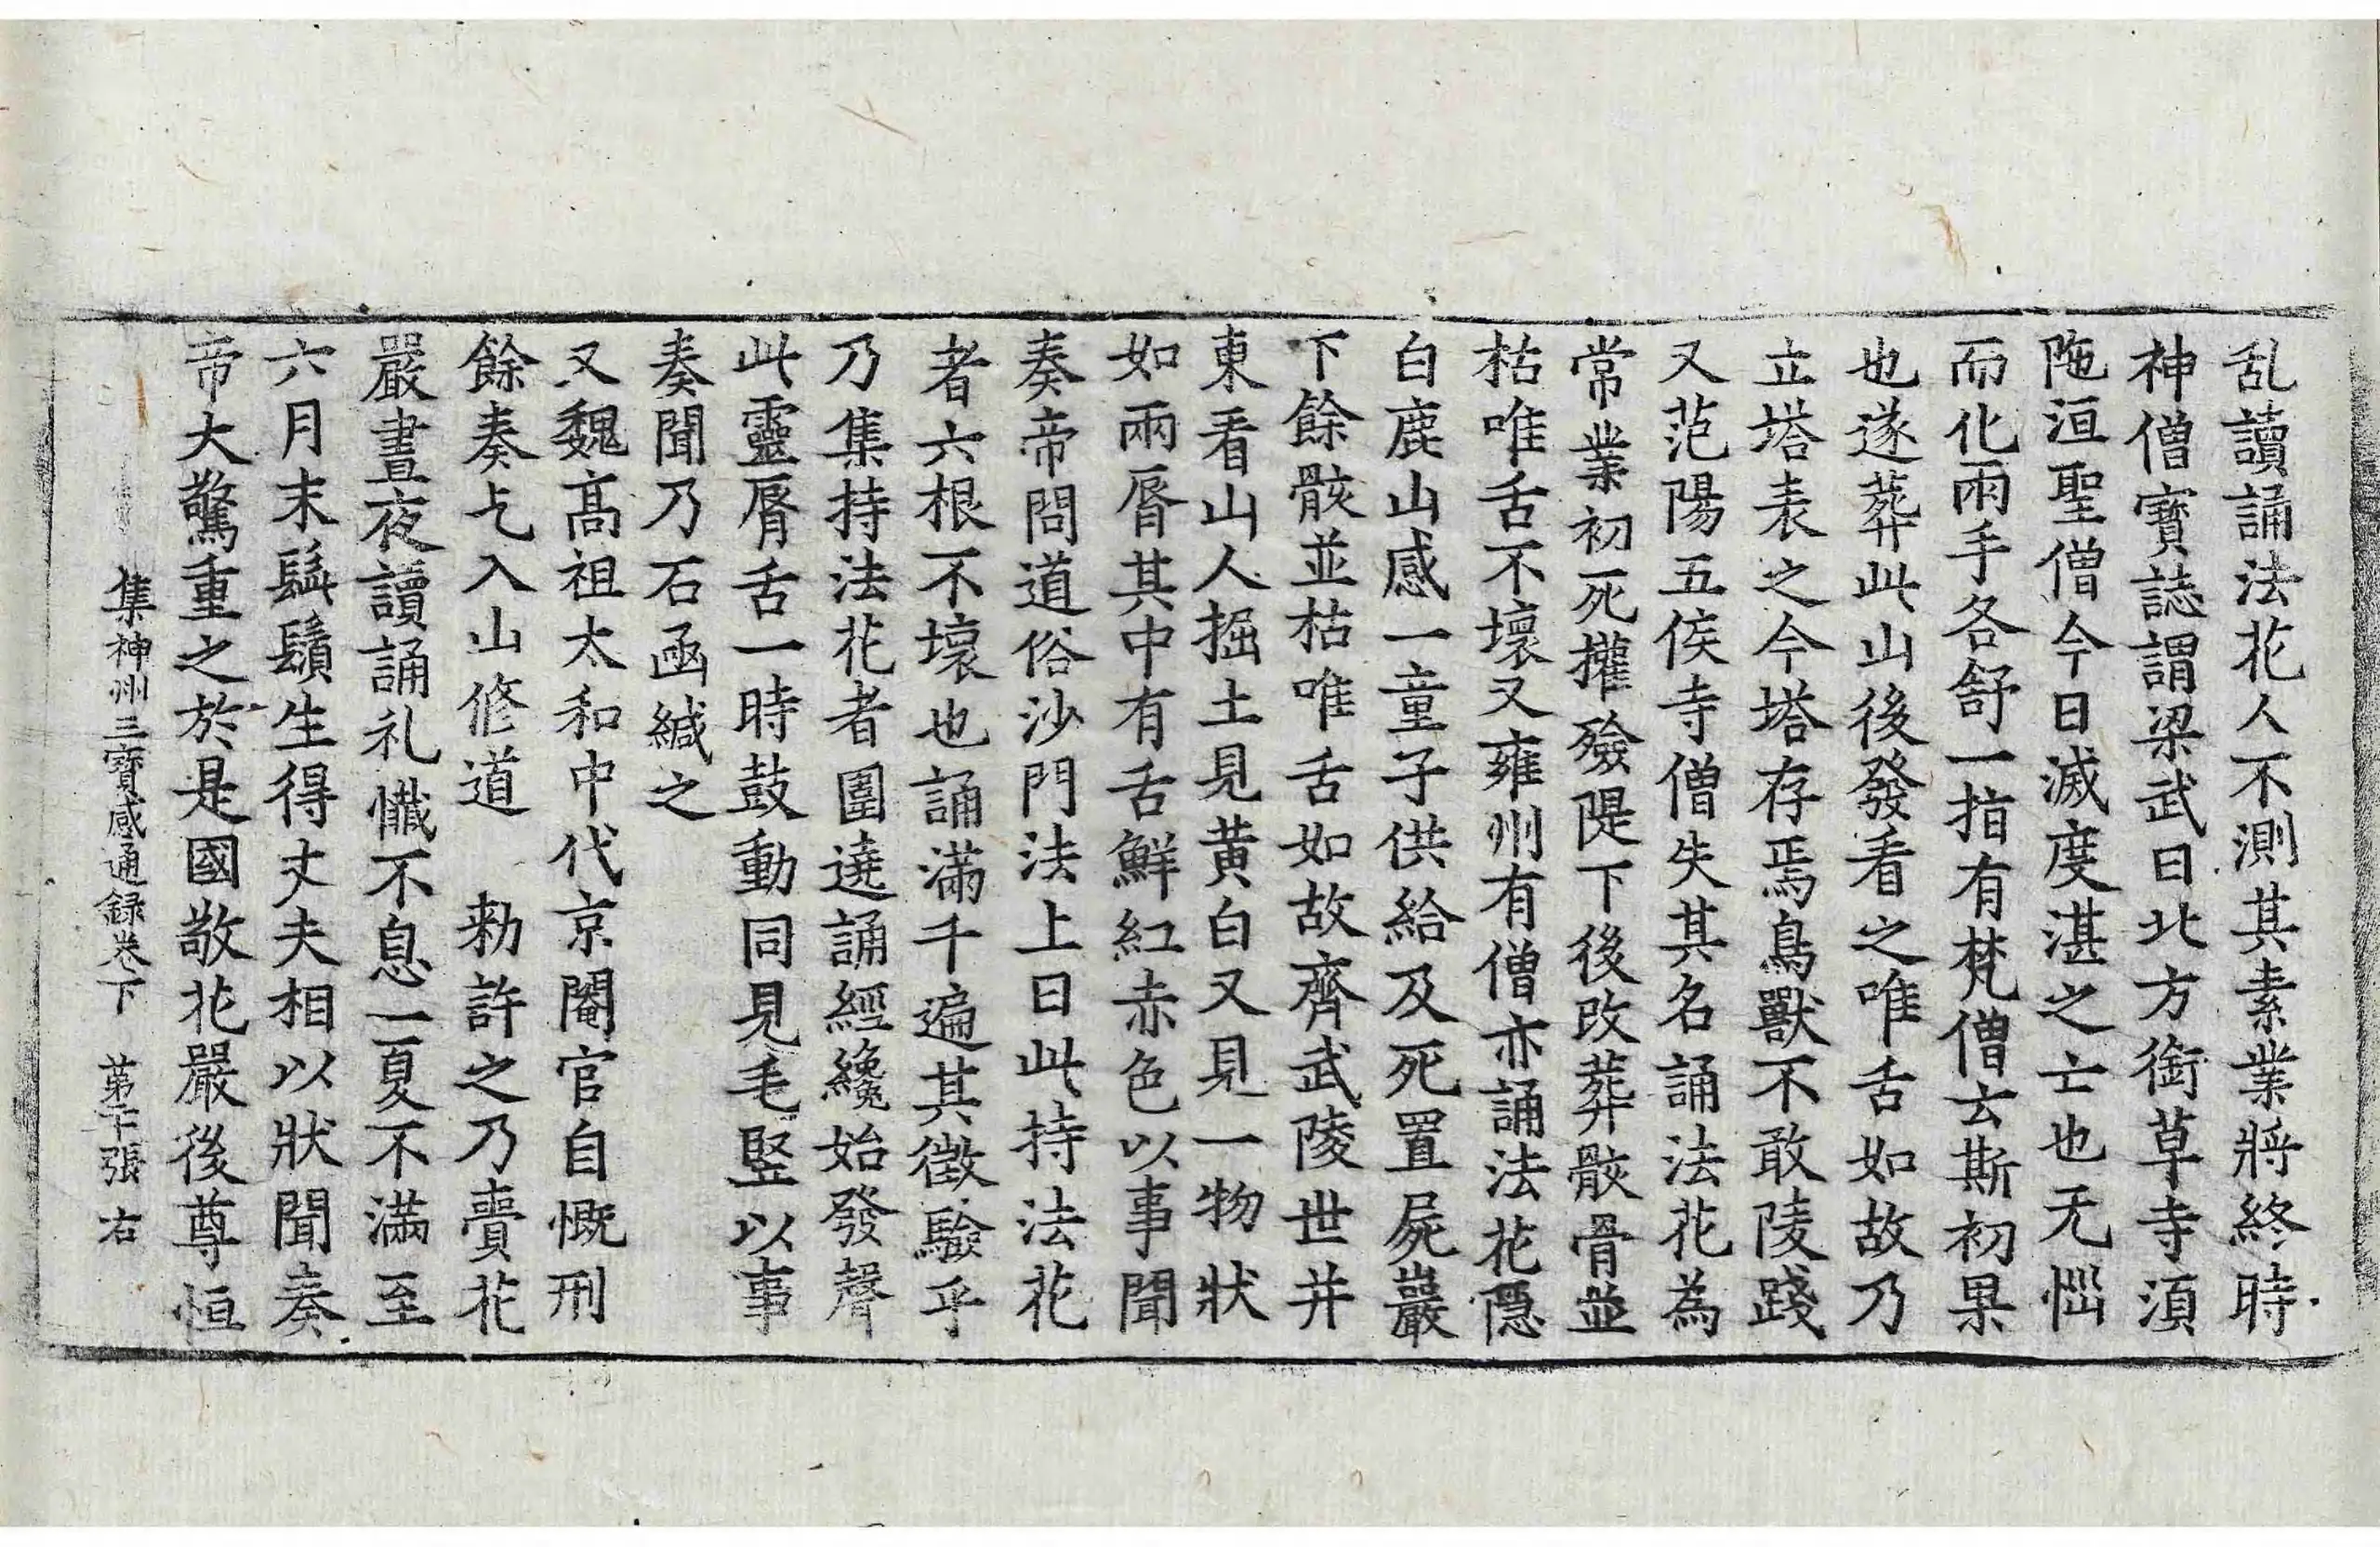 乱讀誦法花人不測其素業將終時
神僧寳誌謂梁武曰北方銜草寺湏
陁洹聖僧今日滅度湛之亡也无惱
而化兩手各舒一指有梵僧云斯初果
也遂葬此山後發看之唯舌如故乃
立塔表之今塔存焉鳥獸不敢陵踐
又范陽五侯寺僧失其名誦法花為
常業初死攉殮隄下後改葬骸骨並
枯唯舌不壞又雍州有僧亦誦法花隱
白鹿山感一童子供給及死置屍巖
下餘骸並枯唯舌如故齊武陵世并
東看山人掘土見黄白又見一物狀
如兩脣其中有舌鮮紅赤色以事聞
奏帝問道俗沙門法上曰此持法花
者六根不壞也誦滿千遍其徵驗乎
乃集持法花者圍遶誦經纔始發聲
此靈脣舌一時鼓動同見毛竪以事
奏聞乃石凾緘之
又魏髙祖太和中代京閹官自慨刑
餘奏乞入山修道　勑許之乃賷花
嚴晝夜讀誦礼懺不息一夏不滿至
六月末髭鬚生得丈夫相以狀聞奏
帝大驚重之於是國敬花嚴後尊恒
集神州三寳感通録卷下　苐二十張　右